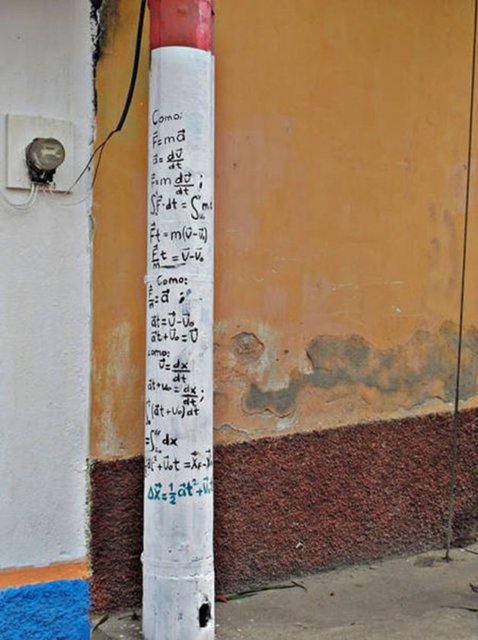 Como:
F⃗=ma⃗
a⃗=dv⃗/dt
F⃗=m dv⃗/dt;
∫F⃗·dt=∫m
F⃗t=m(v⃗-v⃗₀)
F⃗/m t=v⃗-v⃗₀
Como:
F⃗/m=a⃗;
a⃗t=v⃗-v⃗₀
a⃗t+v⃗₀=v⃗
como:
v⃗=dx⃗/dt
a⃗t+v₀=dx⃗/dt;
∫(a⃗t+v₀)dt
=∫dx
t²+v⃗₀t=x⃗f-x⃗
Δx⃗=½a⃗t²+v⃗